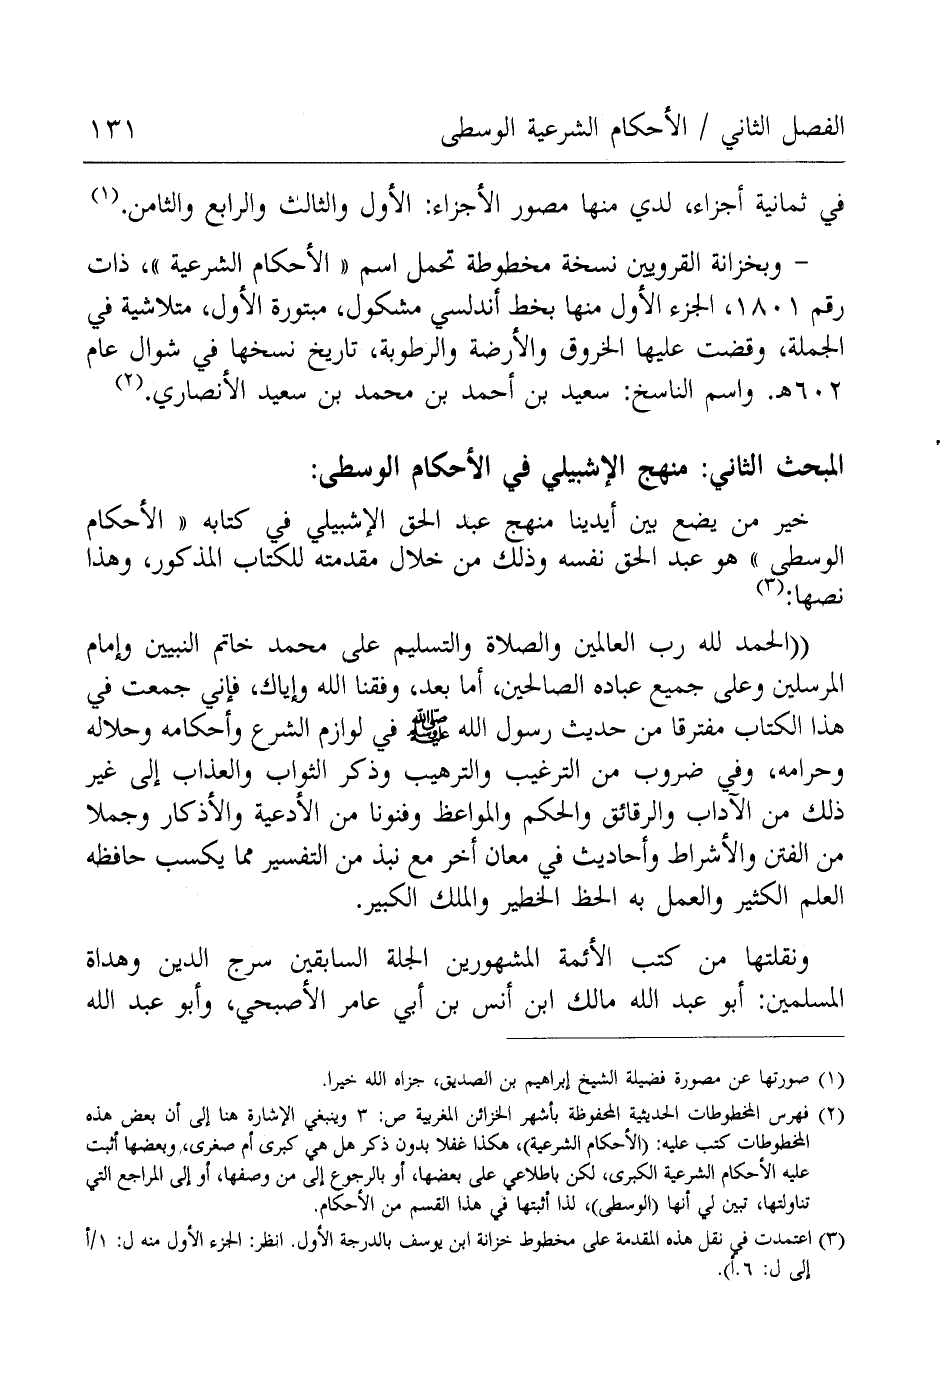 الفصل الثاني / الأحكام الشرعية الوسطى ١٣١
في ثمانية أجزاء، لدي منها مصور الأجزاء: الأول والثالث والرابع والثامن.(١)
– وبخزانة القرويين نسخة مخطوطة تحمل اسم « الأحكام الشرعية »، ذات
رقم ١٨٠١، الجزء الأول منها بخط أندلسي مشكول، مبتورة الأول، متلاشية في
الجملة، وقضت عليها الخروق والأرضة والرطوبة، تاريخ نسخها في شوال عام
٦٠٢هـ. واسم الناسخ: سعيد بن أحمد بن محمد بن سعيد الأنصاري.(٢)
المبحث الثاني: منهج الإشبيلي في الأحكام الوسطى:
خير من يضع بين أيدينا منهج عبد الحق الإشبيلي في كتابه « الأحكام
الوسطى » هو عبد الحق نفسه وذلك من خلال مقدمته للكتاب المذكور، وهذا
نصها:(٣)
((الحمد لله رب العالمين والصلاة والتسليم على محمد خاتم النبيين وإمام
المرسلين وعلى جميع عباده الصالحين، أما بعد، وفقنا الله وإياك، فإني جمعت في
هذا الكتاب مفترقا من حديث رسول الله ﷺ في لوازم الشرع وأحكامه وحلاله
وحرامه، وفي ضروب من الترغيب والترهيب وذكر الثواب والعذاب إلى غير
ذلك من الآداب والرقائق والحكم والمواعظ وفنونا من الأدعية والأذكار وجملا
من الفتن والأشراط وأحاديث في معان أخر مع نبذ من التفسير مما يكسب حافظه
العلم الكثير والعمل به الحظ الخطير والملك الكبير.
ونقلتها من كتب الأئمة المشهورين الجلة السابقين سرج الدين وهداة
المسلمين: أبو عبد الله مالك ابن أنس بن أبي عامر الأصبحي، وأبو عبد الله
(١) صورتها عن مصورة فضيلة الشيخ إبراهيم بن الصديق، جزاه الله خيرا.
(٢) فهرس المخطوطات الحديثية المحفوظة بأشهر الخزائن المغربية ص: ٣ وينبغي الإشارة هنا إلى أن بعض هذه
المخطوطات كتب عليه: (الأحكام الشرعية)، هكذا غفلا بدون ذكر هل هي كبرى أم صغرى، وبعضها أثبت
عليه الأحكام الشرعية الكبرى، لكن باطلاعي على بعضها، أو بالرجوع إلى من وصفها، أو إلى المراجع التي
تناولتها، تبين لي أنها (الوسطى)، لذا أثبتها في هذا القسم من الأحكام.
(٣) اعتمدت في نقل هذه المقدمة على مخطوط خزانة ابن يوسف بالدرجة الأول. انظر: الجزء الأول منه ل: ١/أ
إلى ل: ٦.أ).